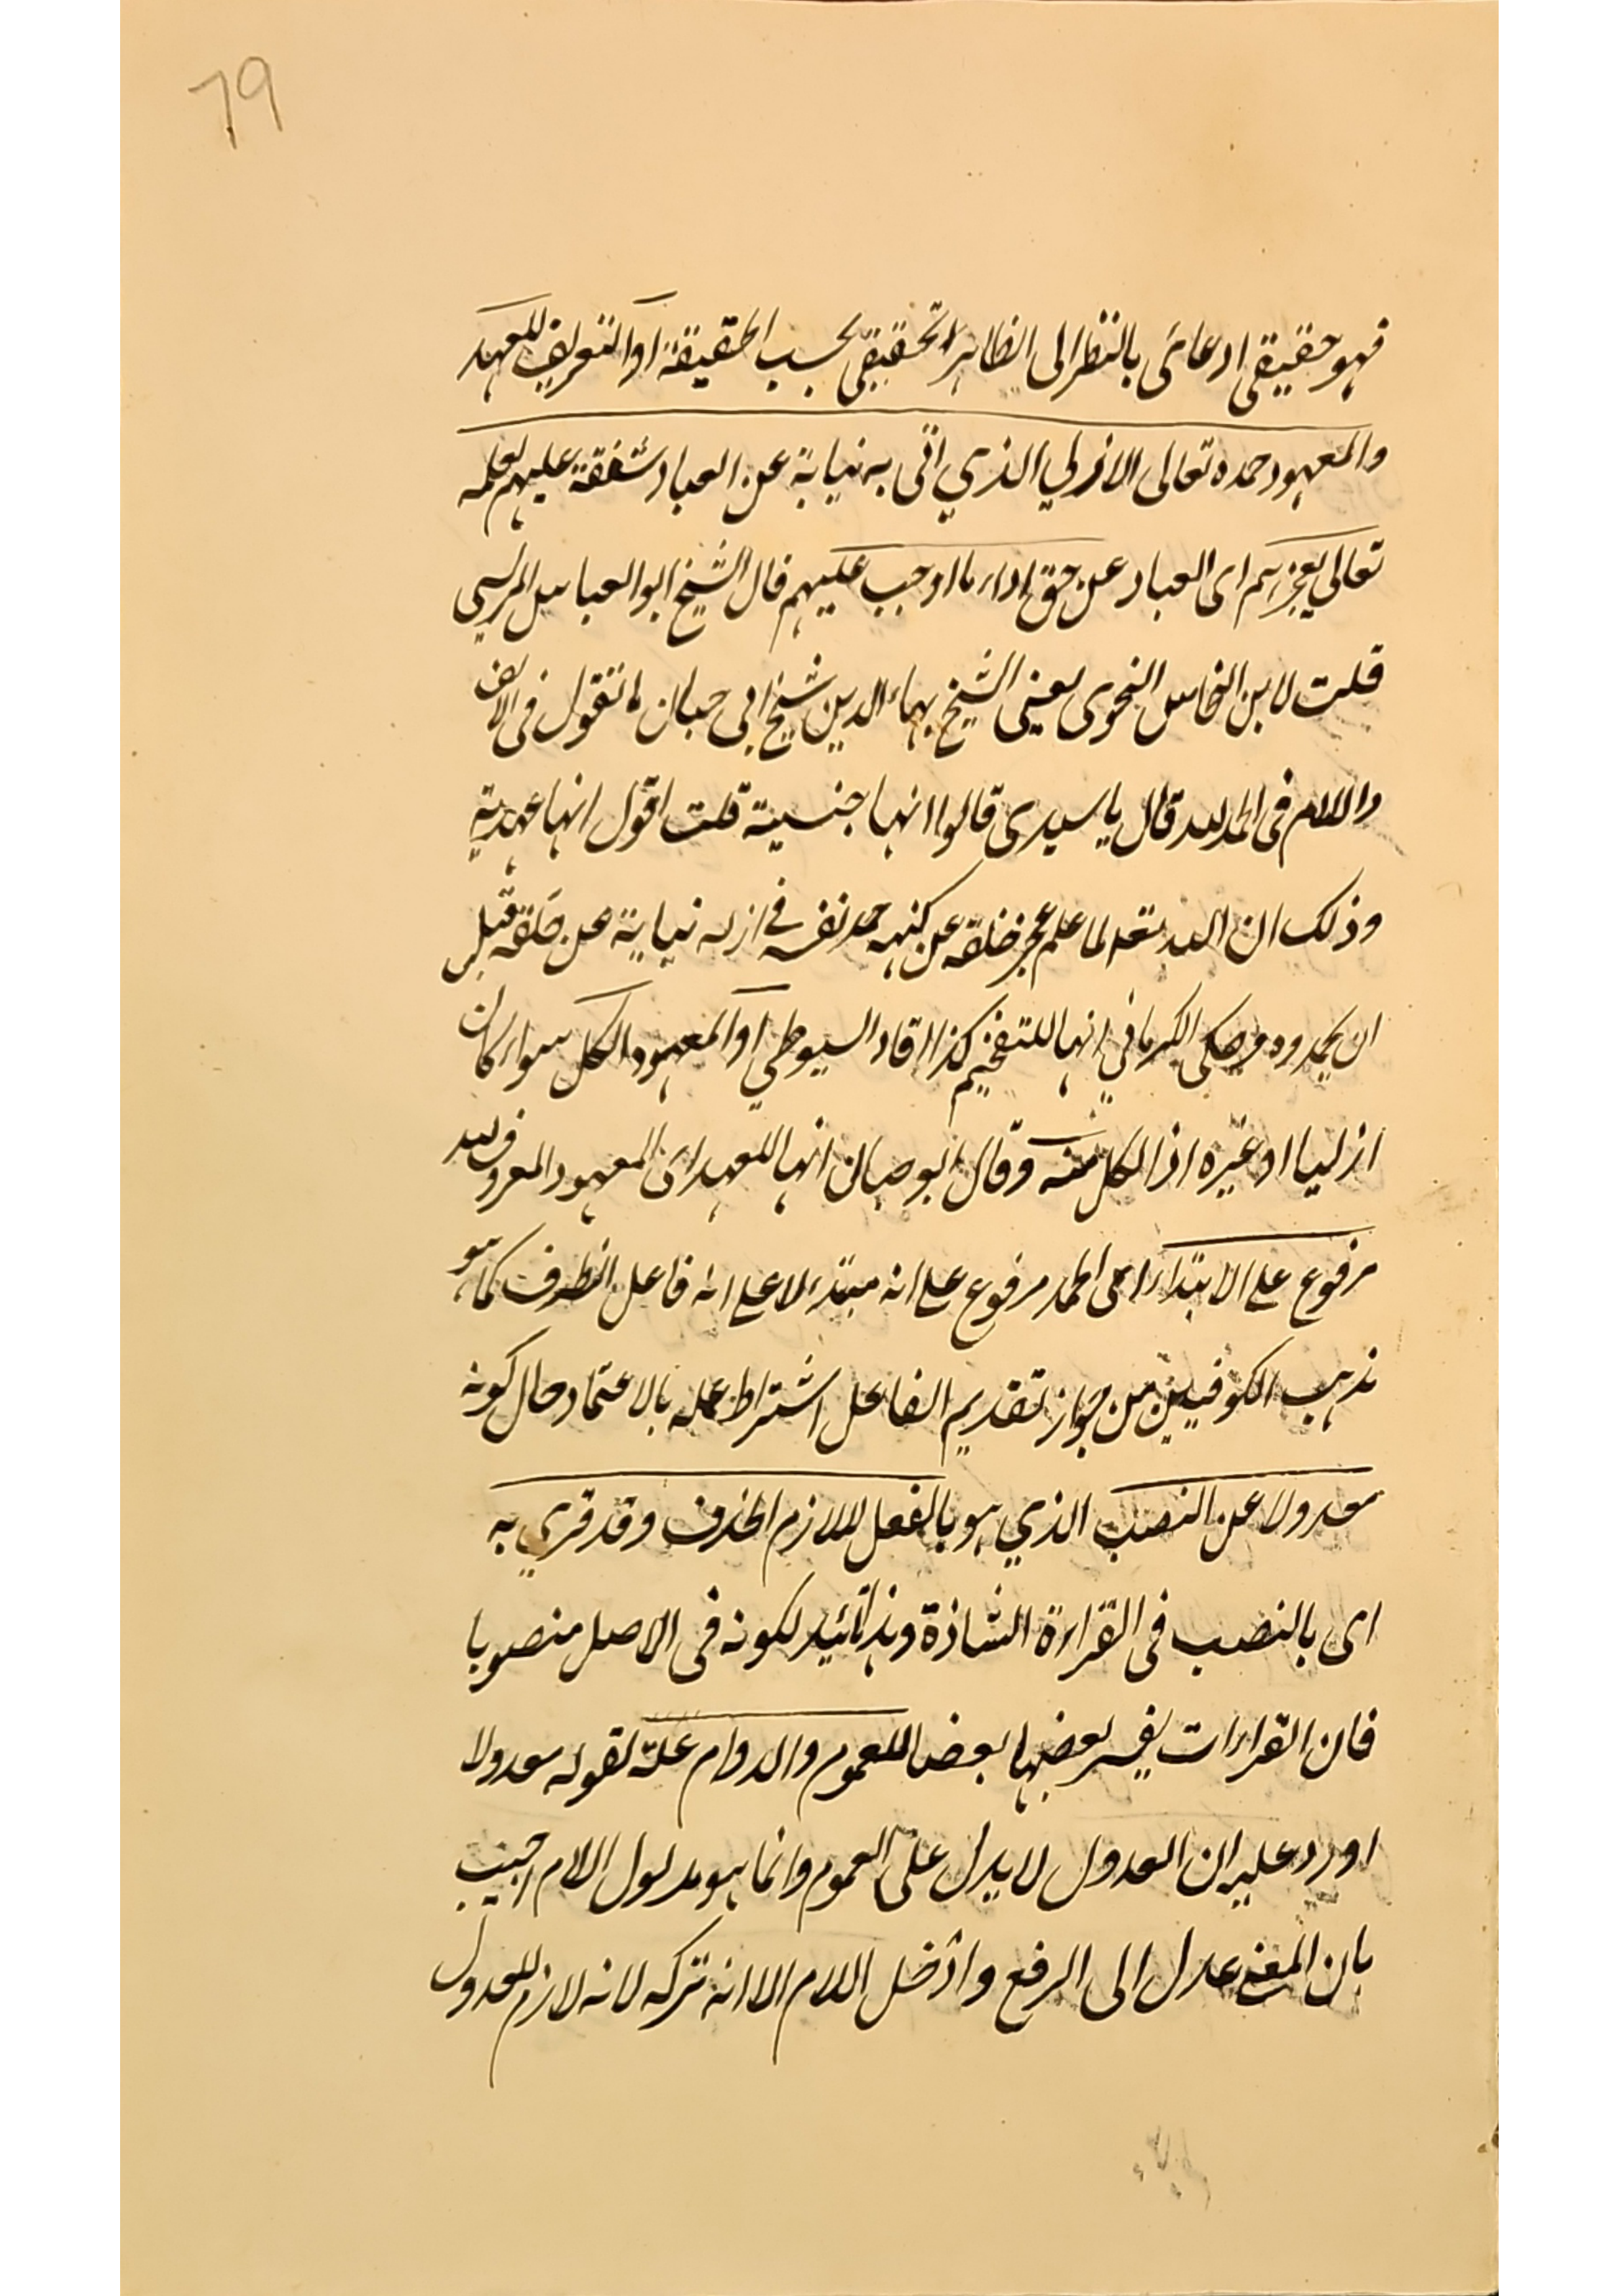 ٦٩
فهو حقيقى ادعائى بالنظر الى الظاهر تحقيقى بحسب الحقيقة او التعريف للعهد
والمعهود حمده تعالى الازلي الذي اتى به نيابة عن العباد شفقة عليهم لعلمه
تعالى بعجزهم اى العباد عن حق اداء ما اوجب عليهم قال الشيخ ابو العباس المرسي
قلت لابن النحاس النحوى يعنى الشيخ بهاء الدين شيخ ابى حيان ما تقول فى الالف
واللام فى الحمد لله قال يا سيدى قالوا انها جنسية قلت اقول انها عهدية
وذلك ان الله تعالى لما علم عجز خلقه عن كنه حمد نفسه في ازله نيابة عن خلقه قبل
ان يحمدوه وحكى الكرماني انها للتفخيم كذا افاد السيوطي او المعهود الكل سواء كان
ازليا او غيره اذ الكل منه وقال ابو حيان انها للعهد اى المعهود المعروف لله
مرفوع على الابتداء اى الحمد مرفوع على انه مبتدء لا على انه فاعل الظرف كما هو
مذهب الكوفيين من جواز تقديم الفاعل اشتراط عمله بالاعتماد حال كونه
معدولا عن النصب الذي هو بالفعل اللازم الحذف وقد قرئ به
اى بالنصب فى القراءة الشاذة وهذا تائيد لكونه فى الاصل منصوبا
فان القراءات يفسر بعضها بعضا للعموم والدوام علة لقوله معدولا
اورد عليه ان العدول لا يدل على العموم وانما هو مدلول اللام اجيب
بان المعنى عدل الى الرفع وادخل اللام الا انه تركه لانه لازم للعدول